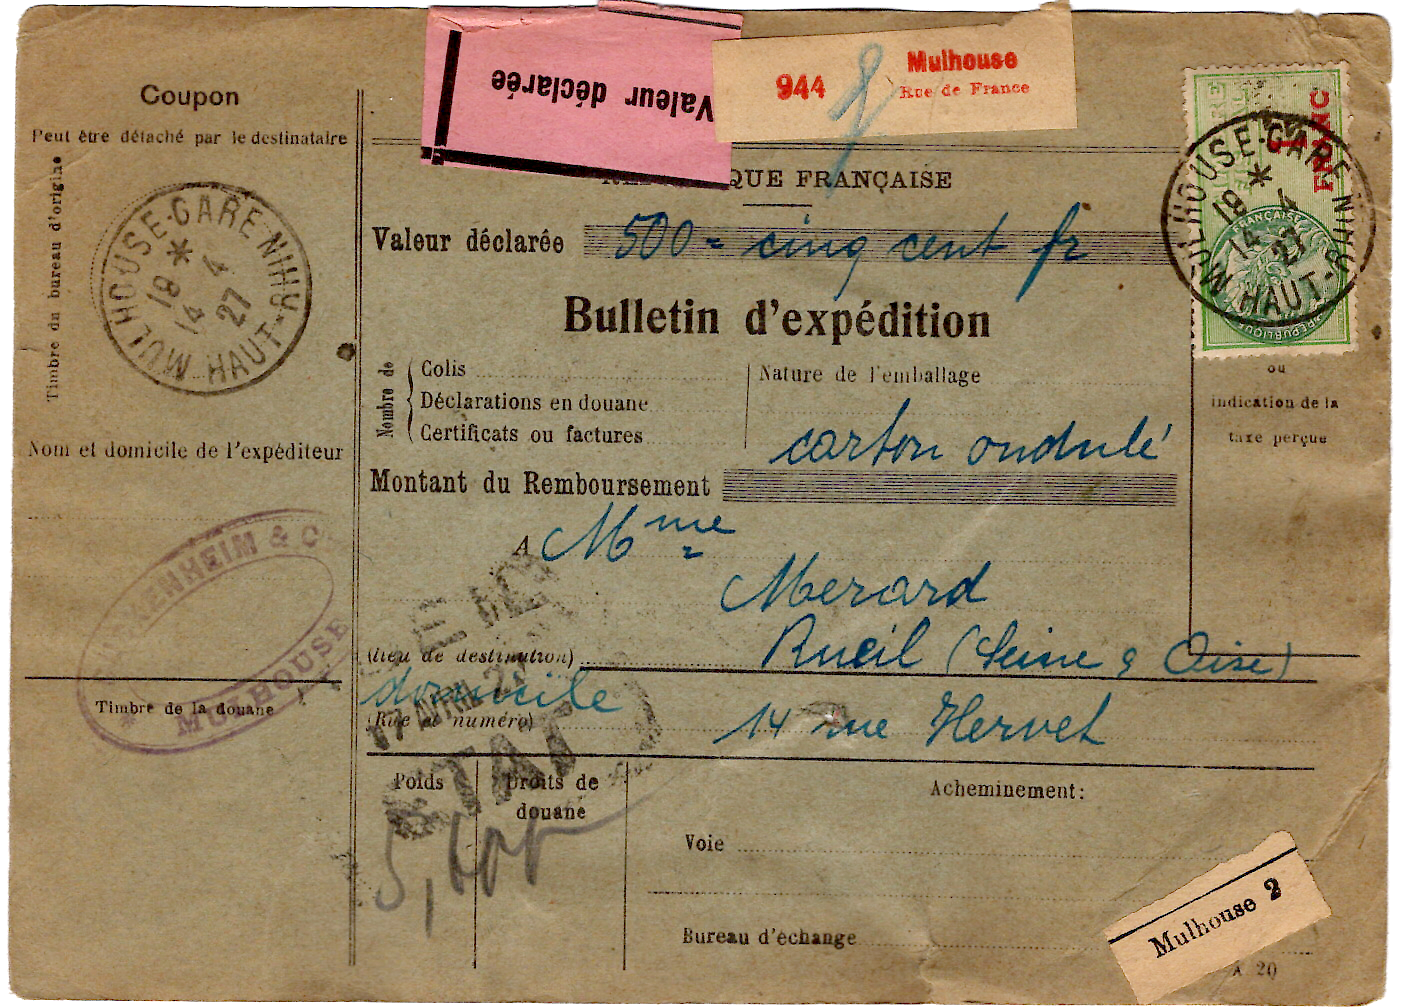 Coupon
Peut être détaché par le destinataire
Timbre du bureau d'origine
MULHOUSE-GARE NIHU
HAUT-RHIN
18 * 4
14 27
Nom et domicile de l'expéditeur
ENHEIM & C
MULHOUSE
Timbre de la douane
Valeur déclarée
944
Mulhouse
Rue de France
QUE FRANÇAISE
Valeur déclarée 500 = cinq cent fr
Bulletin d'expédition
Nombre de
Colis
Déclarations en douane
Certificats ou factures
Nature de l'emballage
carton ondulé
Montant du Remboursement
A Mme
Merard
(lieu de destination) Rueil (Seine & Oise)
domicile
(Rue et numéro) 14 rue Hervet
17 AVRIL 27
ETAT
Poids
Droits de
douane
Acheminement:
Voie
Bureau d'échange
FRANC
FRANÇAISE
REPUBLIQUE
MULHOUSE-GARE
HAUT-RHIN
18 * 4
14 27
ou
indication de la
taxe perçue
Mulhouse 2
A 20